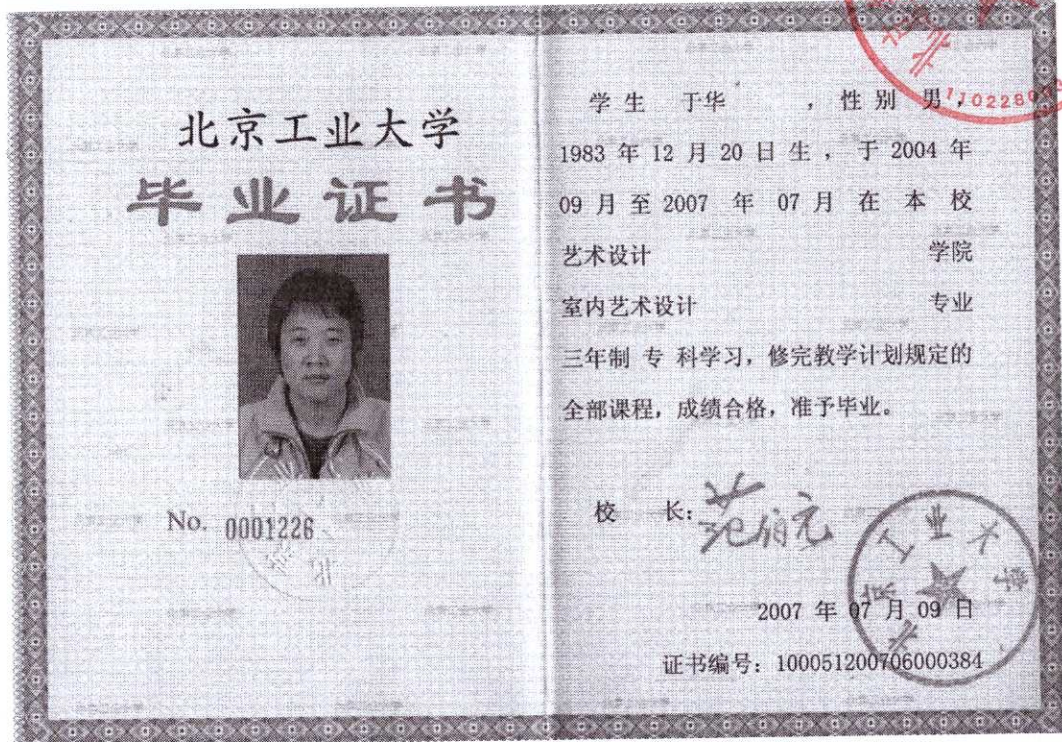 北京工业大学
毕业证书
No. 0001226
学生 于华 ，性别 男，
1983 年 12 月 20 日生，于 2004 年
09 月至 2007 年 07 月 在 本 校
艺术设计 学院
室内艺术设计 专业
三年制 专 科学习，修完教学计划规定的
全部课程，成绩合格，准予毕业。
校 长：范伯元
北京工业大学
2007 年 07 月 09 日
证书编号：100051200706000384